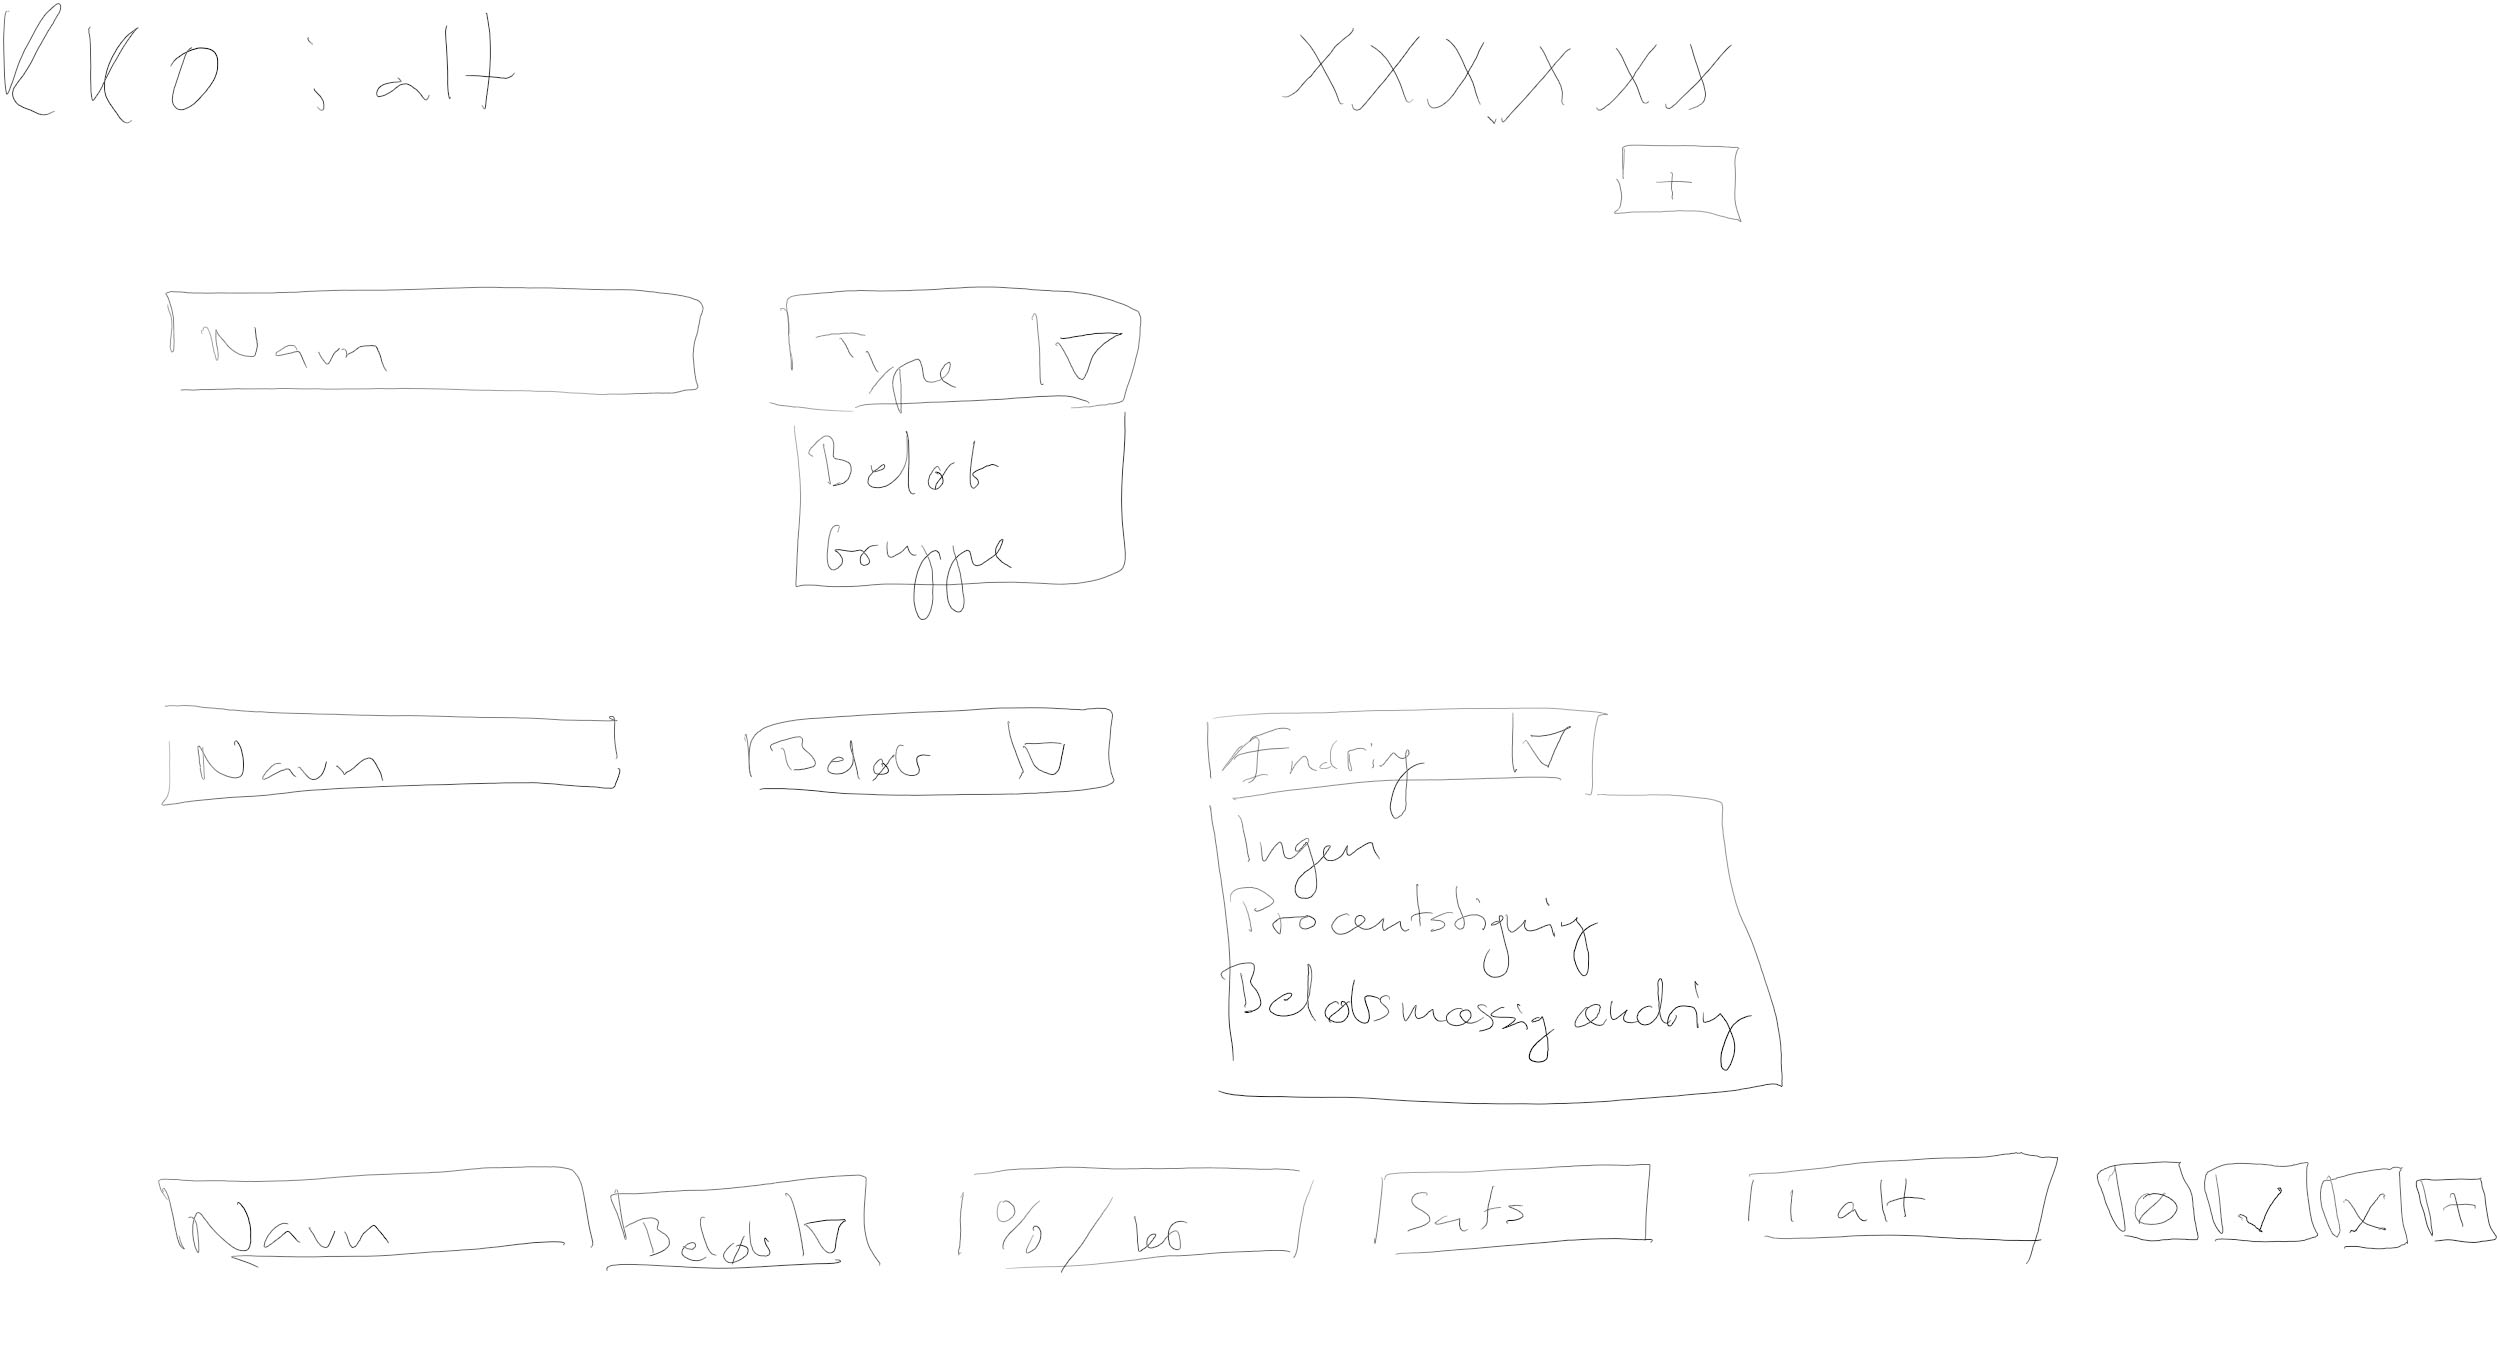 kr o; alt xxx,xxx
+
Navn Type
Beløb
Gruppe
Navn Beløb Ændring
Ingen
Procentstigning
Beløbsmæssig ændring
Navn Beløb % / kr Sats I alt